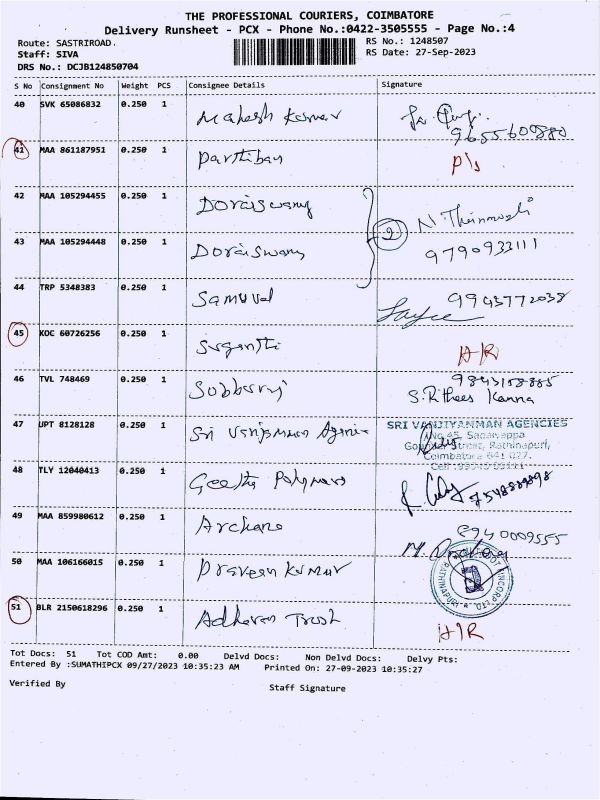 THE PROFESSIONAL COURIERS, COIMBATORE
Delivery Runsheet - PCX - Phone No.:0422-3505555 - Page No.:4
Route: SASTRIROAD. RS No.: 1248507
Staff: SIVA RS Date: 27-Sep-2023
DRS No.: DCJB124850704
S No Consignment No Weight PCS Consignee Details Signature
40 SVK 65086832 0.250 1 Mahesh Kumar
9655609880
41 MAA 861187951 0.250 1 Parthiban P/s
42 MAA 105294455 0.250 1 Doraiswamy
2
43 MAA 105294448 0.250 1 Doraiswamy 9790933111
44 TRP 5348383 0.250 1 Samuval 9943772038
45 KOC 60726256 0.250 1 Suganthi H/R
46 TVL 748469 0.250 1 Subburaj
S.Rithees Kanna
47 UPT 8128128 0.250 1 Sri Vanjiamman Agencie SRI VANJIYAMMAN AGENCIES
Street, Rathinapuri,
Coimbatore 641 027.
48 TLY 12040413 0.250 1 Geetha Polymars
49 MAA 859980612 0.250 1 Archana 9940009555
50 MAA 106166015 0.250 1 Praveen Kumar
RATHINAPURI
51 BLR 2150618296 0.250 1 Adhavan Trust H/R
Tot Docs: 51 Tot COD Amt: 0.00 Delvd Docs: Non Delvd Docs: Delvy Pts:
Entered By :SUMATHIPCX 09/27/2023 10:35:23 AM Printed On: 27-09-2023 10:35:27
Verified By Staff Signature